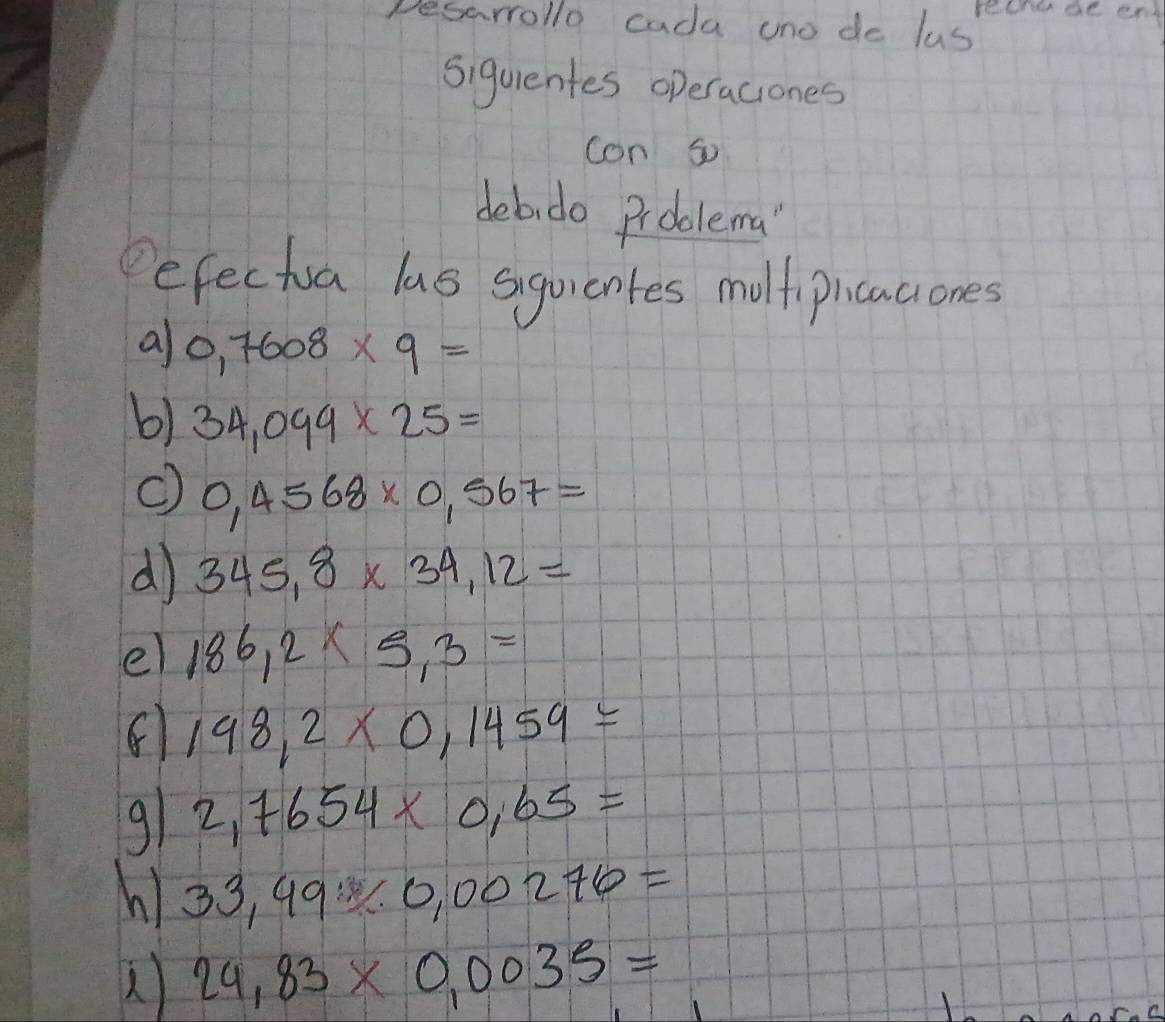 Desarrollo cada uno de las
siguientes operaciones
con su
debido problema"
efectua las siguientes multiplicaciones
a) 0,7608 x 9 =
b) 34,099 x 25 =
c) 0,4568 x 0,567 =
d) 345,8 x 34,12 =
e) 186,2 x 5,3 =
f) 198,2 x 0,1459 =
g) 2,7654 x 0,65 =
h) 33,99 x 0,00276 =
i) 24,83 x 0,0035 =